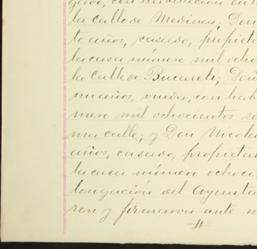 gado, con habitacion en
la calle de Medinas; Don
to años, casado, propieta
la casa número mil ocho
la calle de Bucareli; Don
un años, viudo, con hab
mero mil ochocientos se
ma calle; y Don Nicolas
años, casado, propietar
la casa número ochoci
longacion del Ayunta
ron y firmaron ante m